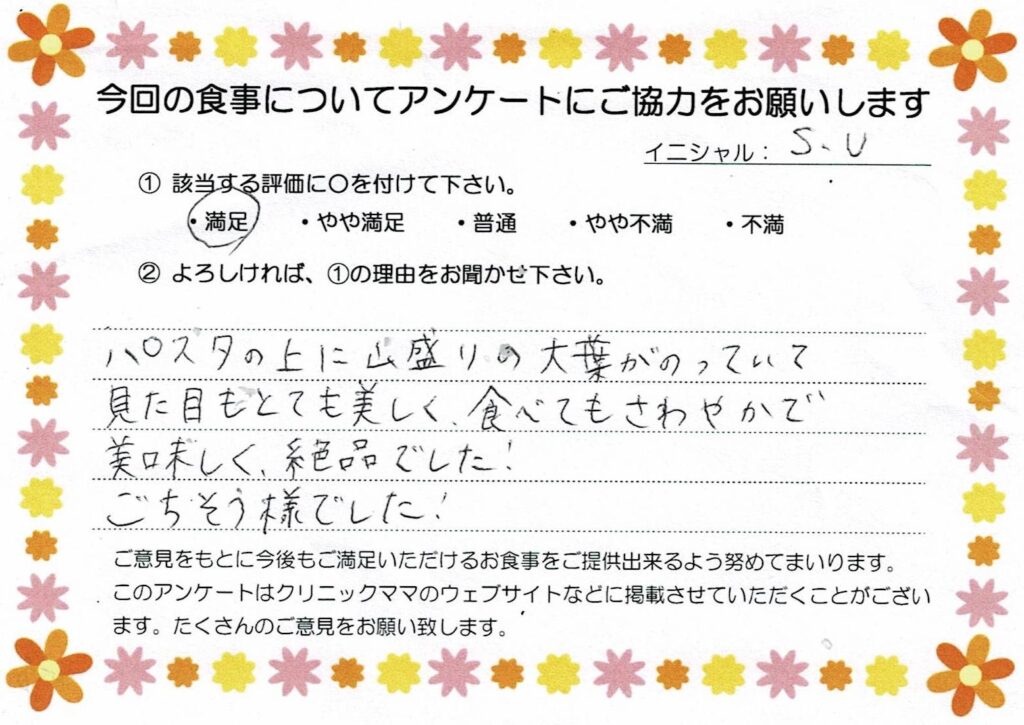 今回の食事についてアンケートにご協力をお願いします
イニシャル： S.U
① 該当する評価に〇を付けて下さい。
・満足 ・やや満足 ・普通 ・やや不満 ・不満
② よろしければ、①の理由をお聞かせ下さい。
パスタの上に山盛りの大葉がのっていて
見た目もとても美しく、食べてもさわやかで
美味しく、絶品でした!
ごちそう様でした!
ご意見をもとに今後もご満足いただけるお食事をご提供出来るよう努めてまいります。
このアンケートはクリニックママのウェブサイトなどに掲載させていただくことがござい
ます。たくさんのご意見をお願い致します。